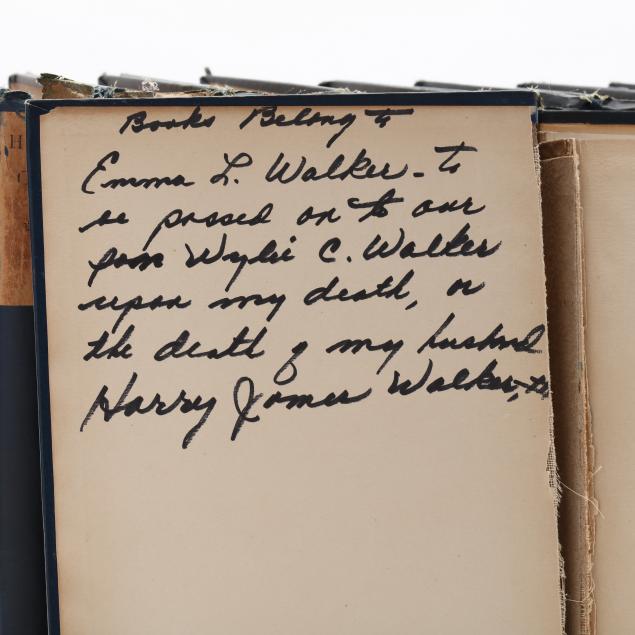 Books Belong to
Emma L. Walker - to
be passed on to our
son Wylie C. Walker
upon my death, or
the death of my husband
Harry James Walker,